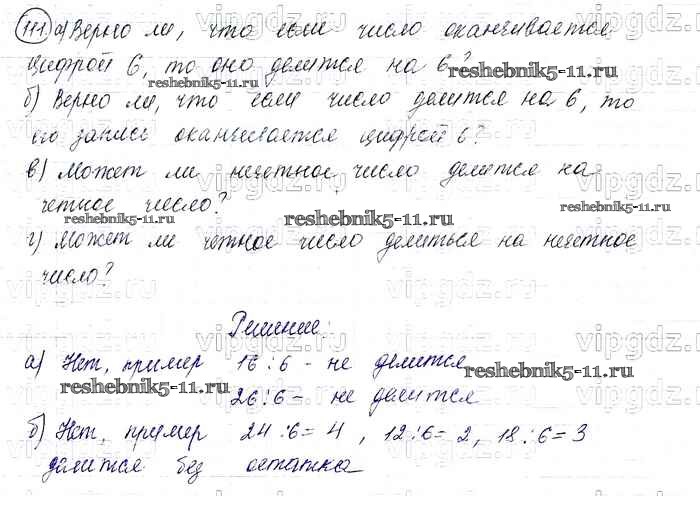 111 а) Верно ли, что если число оканчивается
цифрой 6, то оно делится на 6?
reshebnik5-11.ru
б) Верно ли, что если число делится на 6, то
его запись оканчивается цифрой 6?
в) Может ли нечетное число делится на
четное число?
reshebnik5-11.ru reshebnik5-11.ru reshebnik5-11.ru
г) Может ли четное число делиться на нечетное
число?
Решение:
а) Нет, пример 16:6 - не делится
reshebnik5-11.ru reshebnik5-11.ru
26:6 - не делится
б) Нет, пример 24:6=4, 12:6=2, 18:6=3
делится без остатка
vipgdz.ru